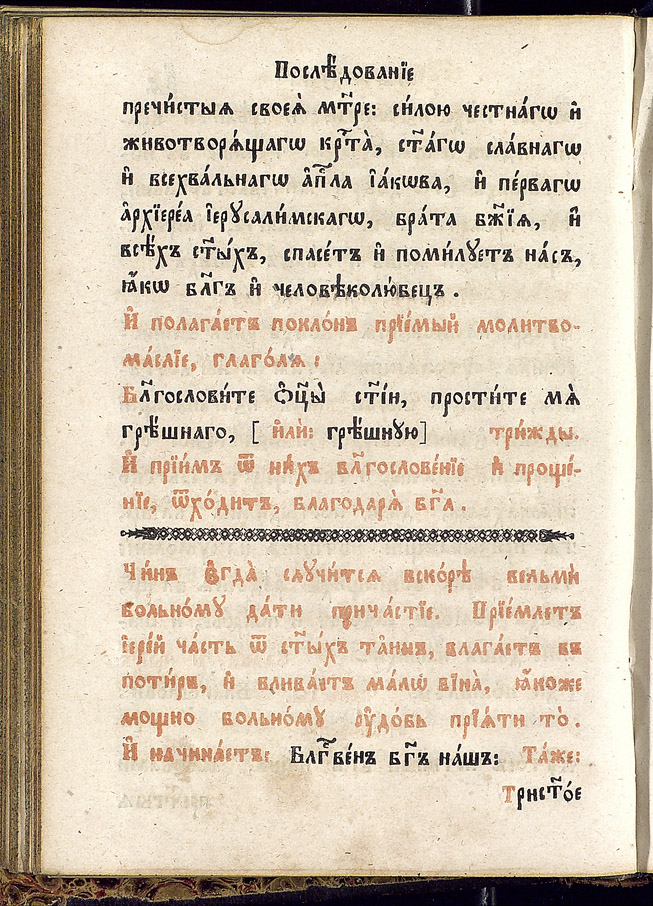 Послѣ́дованїе
пречи́стыѧ своеѧ̀ мт҃ре: си́лою честна́гѡ и҆
животворѧ́щагѡ крⷭ҇та̀, ст҃а́гѡ сла́внагѡ
и҆ всехва́льнагѡ а҆пⷭ҇ла і҆а́кѡва, и҆ пе́рвагѡ
а҆рхїере́а і҆ерꙋсали́мскагѡ, бра́та бж҃їѧ, и҆
всѣ́хъ ст҃ы́хъ, спасе́тъ и҆ поми́лꙋетъ на́съ,
ꙗ҆́кѡ бл҃гъ и҆ человѣколю́бецъ .
И҆ полага́етъ покло́нъ прїе́мый молитво-
ма́слїе, глаго́лѧ :
Бл҃гослови́те ѻ҆ц҃ы̀ ст҃і́и, прости́те мѧ̀
грѣ́шнаго, [ и҆лѝ: грѣ́шнꙋю] три́жды.
И҆ прїи́мъ ѿ ни́хъ бл҃гослове́нїе и҆ проще́-
нїе, ѿхо́дитъ, благодарѧ̀ бг҃а .
Чи́нъ є҆гда̀ слꙋчи́тсѧ вско́рѣ вельмѝ
больно́мꙋ да́ти прича́стїе. Прїе́млетъ
і҆ере́й ча́сть ѿ ст҃ы́хъ та̑инъ, влага́етъ въ
поти́ръ, и҆ влива́етъ ма́лѡ вїна̀, ꙗ҆́коже
мощно больно́мꙋ ᲂу҆до́бь прїѧ́ти то̀ .
И҆ начина́етъ: Блⷭ҇ве́нъ бг҃ъ на́шъ: Та́же:
Трист҃о́е